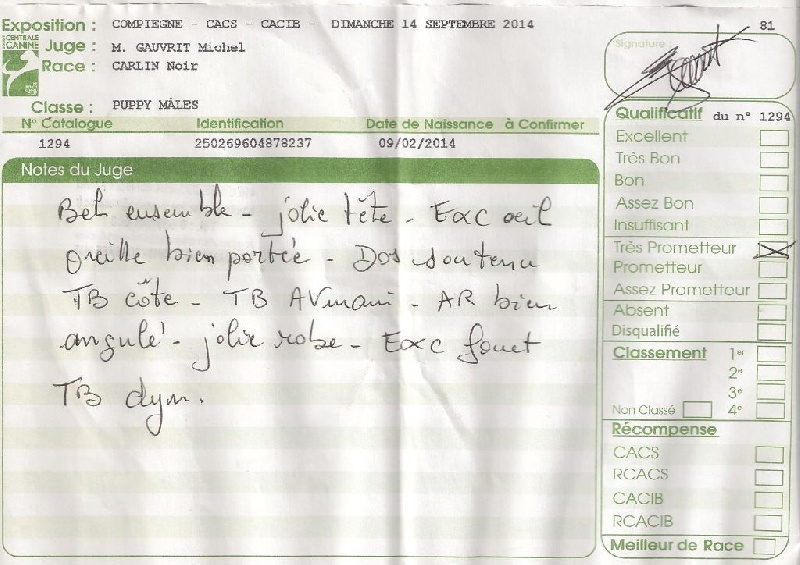 Exposition : COMPIEGNE - CACS - CACIB DIMANCHE 14 SEPTEMBRE 2014
CENTRALE CANINE
Juge : M. GAUVRIT Michel
Race : CARLIN Noir
Classe : PUPPY MÂLES
N° Catalogue Identification Date de Naissance à Confirmer
1294 250269604878237 09/02/2014
Notes du Juge
Bel ensemble - jolie tête - Exc oeil
Oreille bien portée - Dos soutenu
TB côte - TB AVmain - AR bien
angulé - jolie robe - Exc fouet
TB dym.
81
Signature :
Qualificatif du n° 1294
Excellent
Très Bon
Bon
Assez Bon
Insuffisant
Très Prometteur
Prometteur
Assez Prometteur
Absent
Disqualifié
Classement 1er
2e
3e
Non Classé 4e
Récompense
CACS
RCACS
CACIB
RCACIB
Meilleur de Race